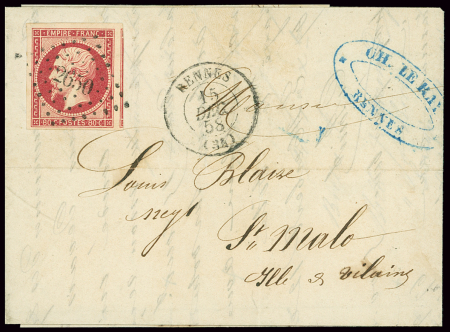 EMPIRE FRANC
2650
80 POSTES 80 C
RENNES
15
DEC
58
(34)
CH. LE RAY
RENNES
Monsieur
Louis Blaize
negt
St Malo
Ille & Vilaine